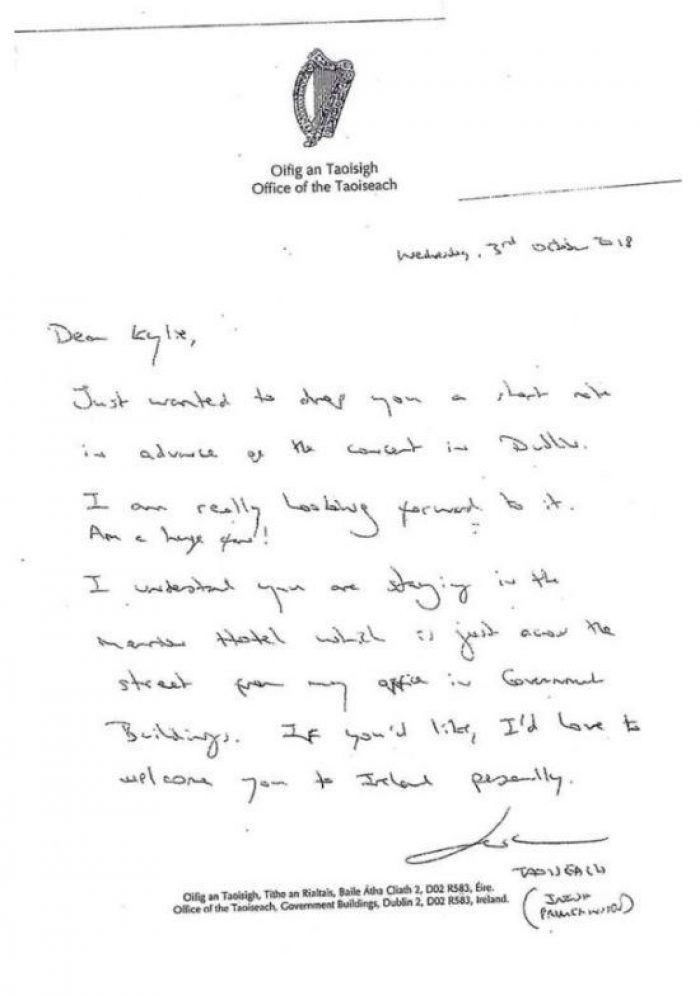 Oifig an Taoisigh
Office of the Taoiseach
Wednesday, 3rd October 2018
Dear Kylie,
Just wanted to drop you a short note
in advance of the concert in Dublin.
I am really looking forward to it.
Am a huge fan!
I understand you are staying in the
Merrion Hotel which is just across the
street from my office in Government
Buildings. If you'd like, I'd love to
welcome you to Ireland personally.
Leo
TAOISEACH
(IRISH
PRIME MINISTER)
Oifig an Taoisigh, Tithe an Rialtais, Baile Átha Cliath 2, D02 R583, Éire.
Office of the Taoiseach, Government Buildings, Dublin 2, D02 R583, Ireland.